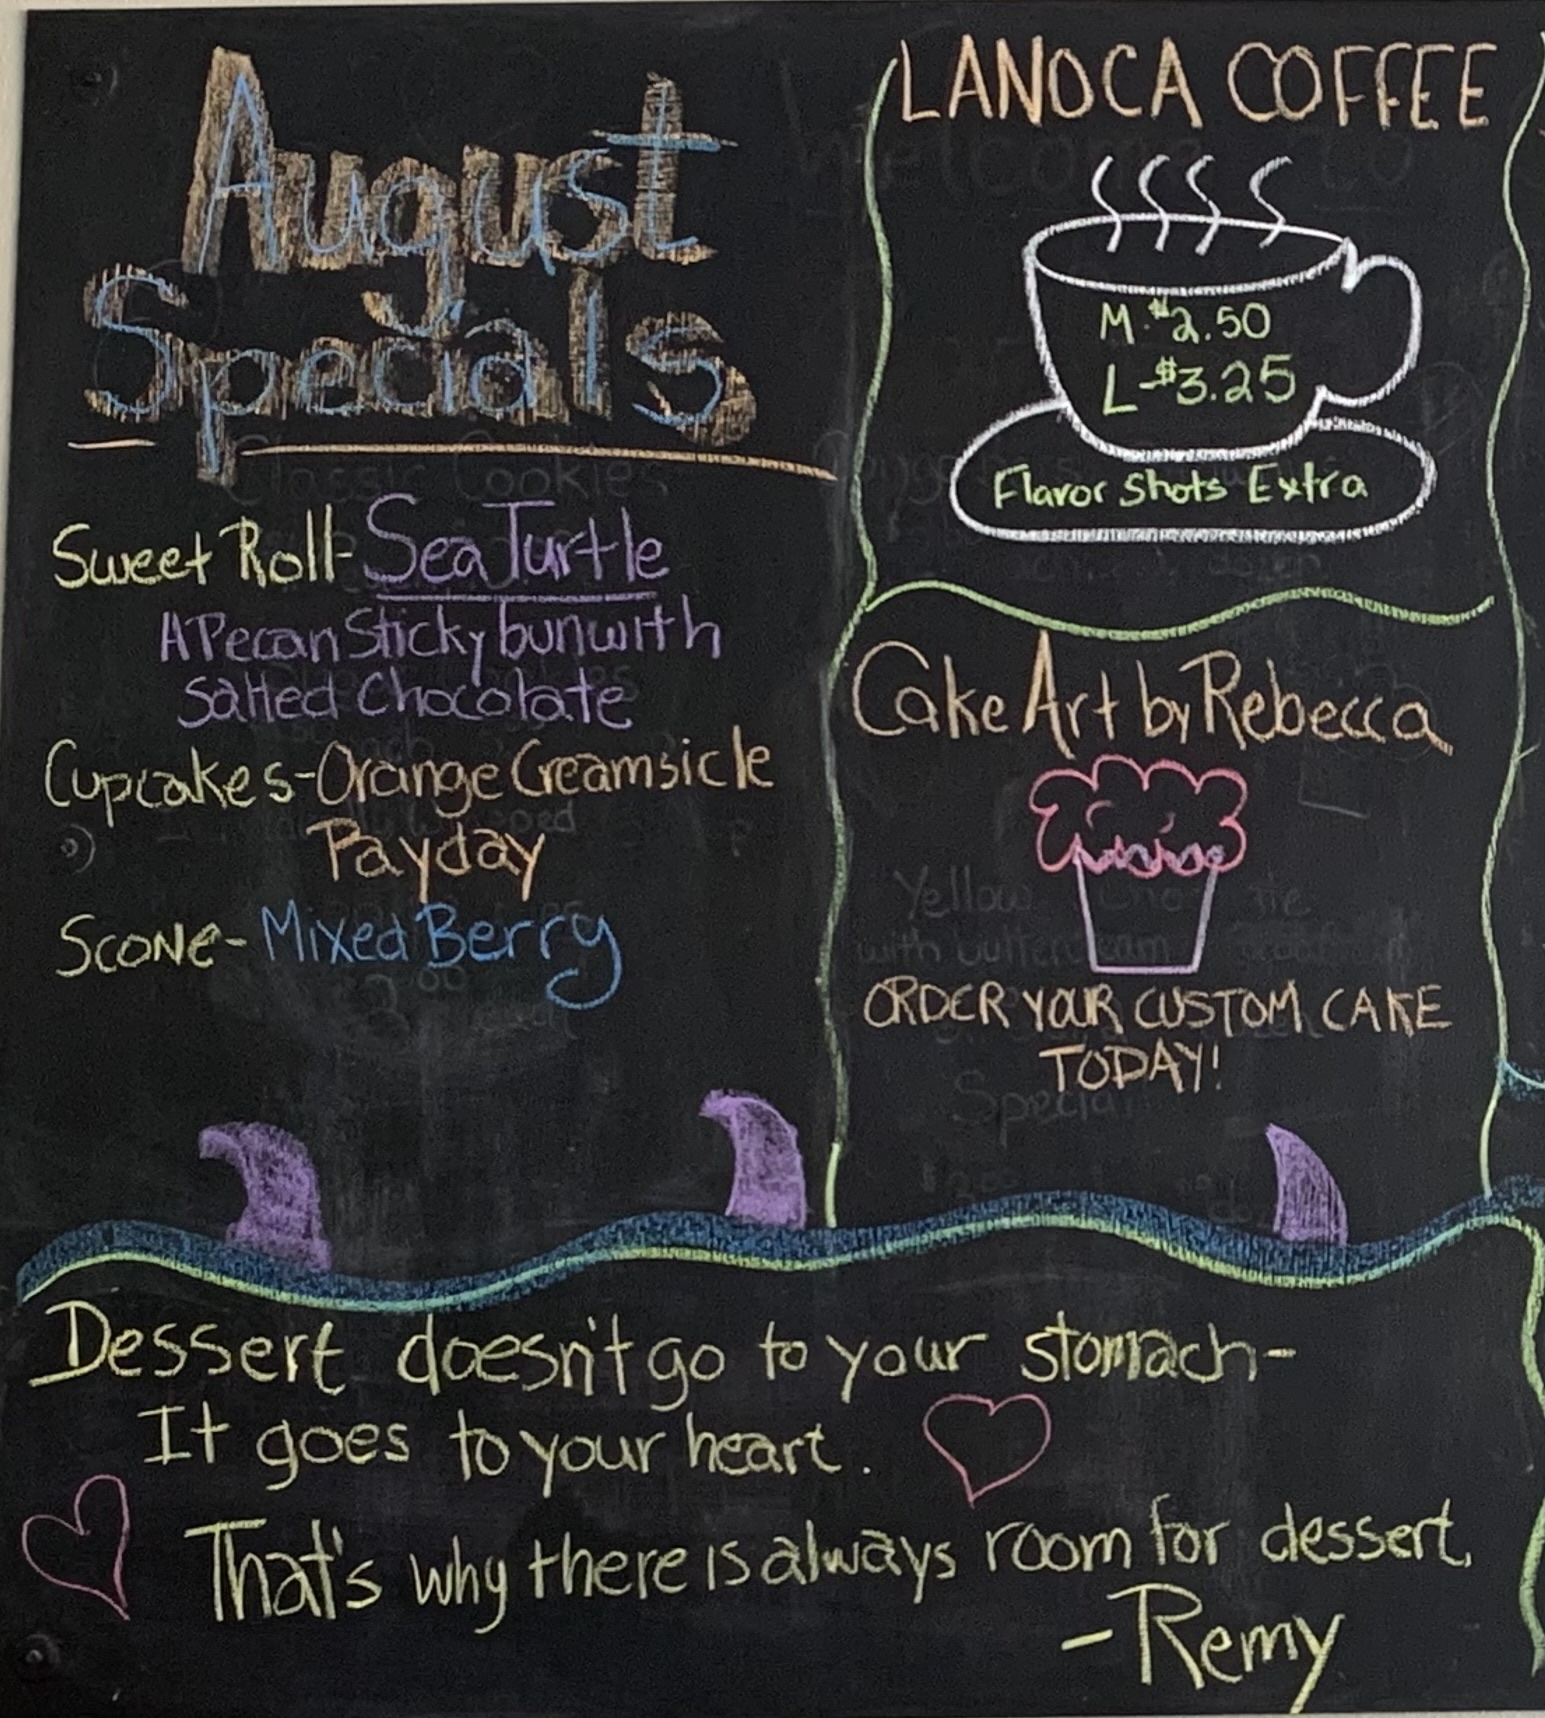 August
Specials
Sweet Roll- Sea Turtle
A Pecan Sticky bun with
Salted Chocolate
Cupcakes- Orange Creamsicle
Payday
Scone- Mixed Berry
LANOCA COFFEE
M.$2.50
L-$3.25
Flavor Shots Extra
Cake Art by Rebecca
ORDER YOUR CUSTOM CAKE
TODAY!
Dessert doesn't go to your stomach-
It goes to your heart.
That's why there is always room for dessert.
-Remy